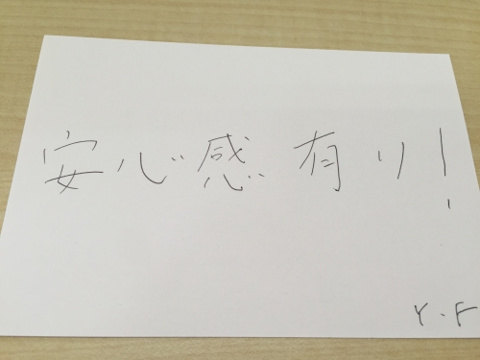 安心感有り!
Y.F